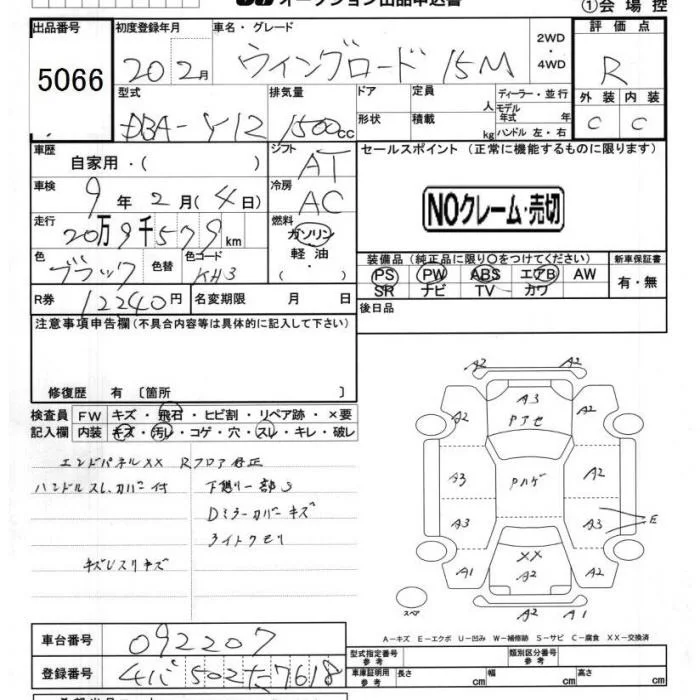 オークション出品申込書
①会場控
出品番号 初度登録年月 車名・グレード 評価点
5066 20 2月 ウイングロード 15M 2WD・4WD R
型式 排気量 ドア 定員 人 ディーラー・並行 外装 内装
DBA-Y12 1500cc 形状 積載 kg モデル年式 年 ハンドル 左・右 C C
車歴 シフト セールスポイント (正常に機能するものに限ります)
自家用・( ) AT
車検 冷房
9年 2月 (4日) AC
NOクレーム・売切
走行 燃料
20万9千579km ガソリン
軽油
・( )
色 色替 色コード 装備品 (純正品に限り○をつけてください) 新車保証書
ブラック KH3 PS PW ABS エアB AW 有・無
SR ナビ TV カワ
R券 12240円 名変期限 月 日 後日品
注意事項申告欄 (不具合内容等は具体的に記入して下さい)
修復歴 有 〔箇所 〕
検査員 FW キズ・飛石・ヒビ割・リペア跡・×要
記入欄 内装 キズ・汚レ・コゲ・穴・スレ・キレ・破レ
エンドパネルXX Rフロア修正
ハンドルスレ、カバー付 下廻り一部S
Dミラーカバーキズ
ライトクモリ
A2 A2
A3
A2 A2
A3 A2
A3 A3 E
XX
A1 A2 A2
A2 A1
スペア
A-キズ E-エクボ U-凹み W-補修跡 S-サビ C-腐食 XX-交換済
車台番号 092207
型式指定番号 参考 類別区分番号 参考
登録番号
車庫証明用 参考 長さ cm 幅 cm 高さ cm